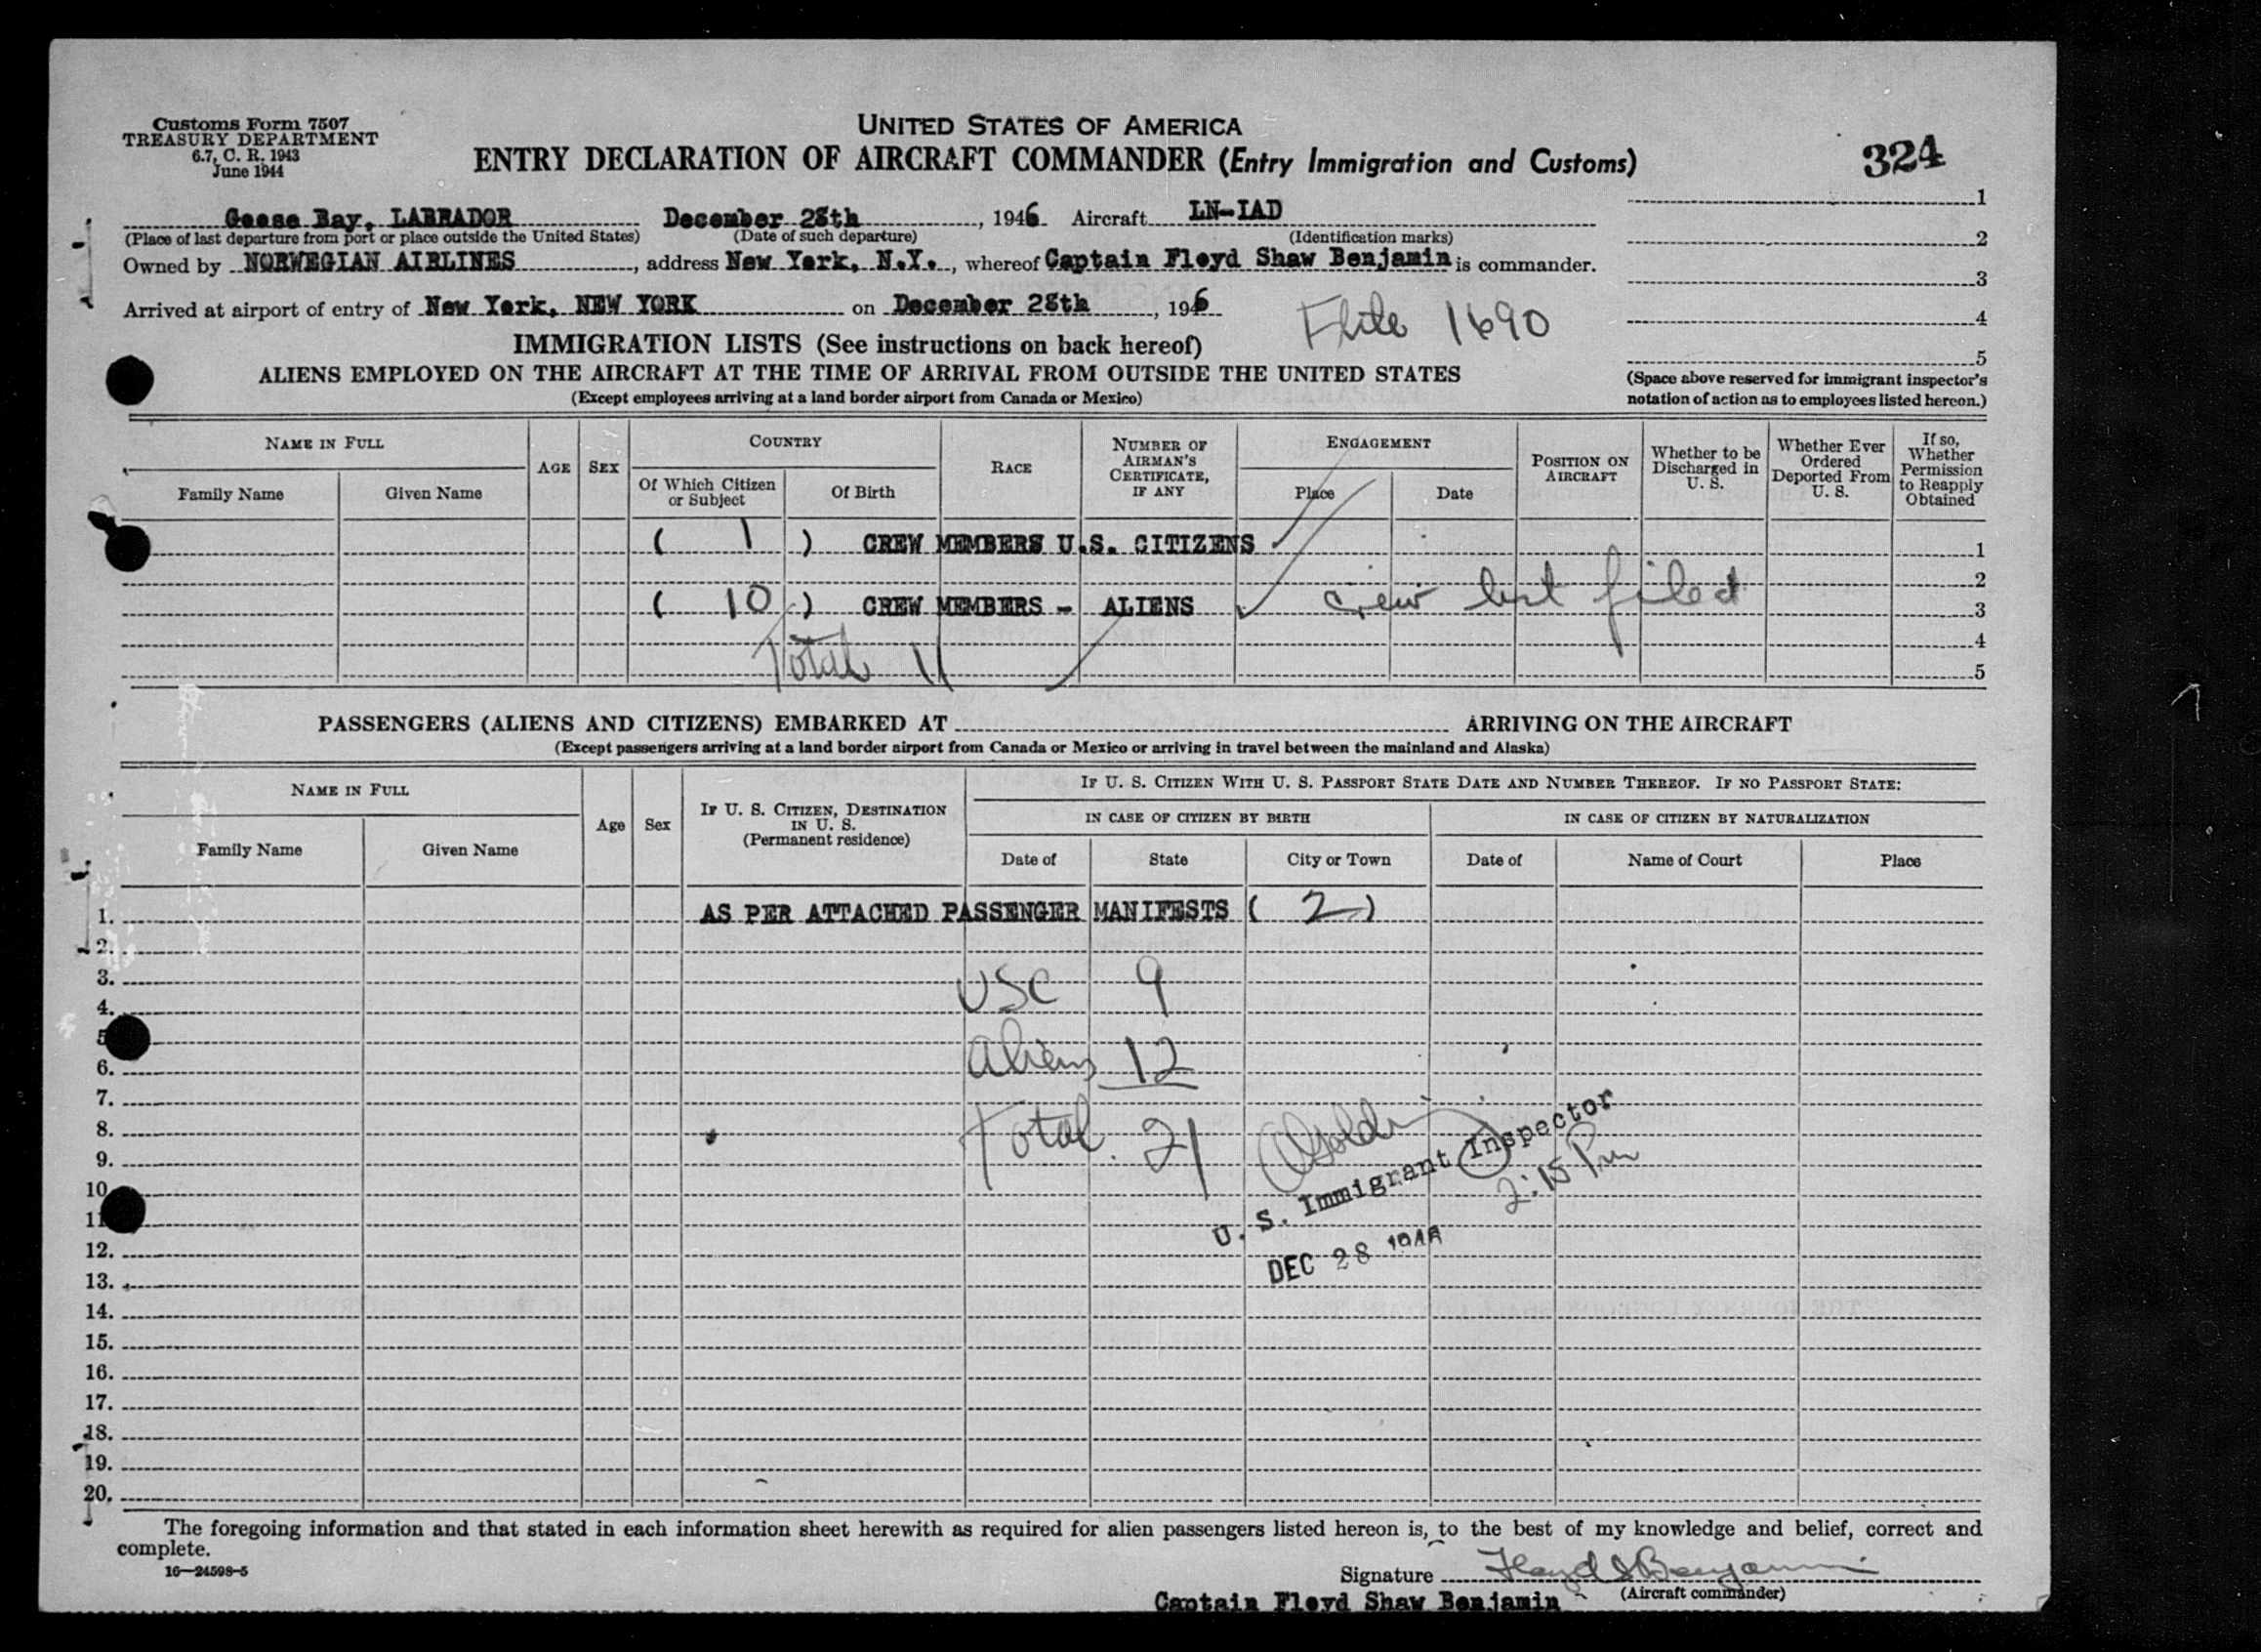 Customs Form 7507
TREASURY DEPARTMENT
6.7, C. R. 1943
June 1944
UNITED STATES OF AMERICA
ENTRY DECLARATION OF AIRCRAFT COMMANDER (Entry Immigration and Customs)
324
Goose Bay, LABRADOR December 28th, 1946 Aircraft LN-IAD
(Place of last departure from port or place outside the United States) (Date of such departure) (Identification marks)
Owned by NORWEGIAN AIRLINES, address New York, N.Y., whereof Captain Floyd Shaw Benjamin is commander.
Arrived at airport of entry of New York, NEW YORK on December 28th, 1946
Flite 1690
1
2
3
4
5
(Space above reserved for immigrant inspector's
notation of action as to employees listed hereon.)
IMMIGRATION LISTS (See instructions on back hereof)
ALIENS EMPLOYED ON THE AIRCRAFT AT THE TIME OF ARRIVAL FROM OUTSIDE THE UNITED STATES
(Except employees arriving at a land border airport from Canada or Mexico)
NAME IN FULL
Family Name Given Name
AGE
SEX
COUNTRY
Of Which Citizen or Subject
Of Birth
RACE
NUMBER OF AIRMAN'S CERTIFICATE, IF ANY
ENGAGEMENT
Place Date
POSITION ON AIRCRAFT
Whether to be Discharged in U. S.
Whether Ever Ordered Deported From U. S.
If so, Whether Permission to Reapply Obtained
( 1 ) CREW MEMBERS U.S. CITIZENS 1
2
( 10 ) CREW MEMBERS - ALIENS crew list filed 3
4
Total 11 5
PASSENGERS (ALIENS AND CITIZENS) EMBARKED AT ARRIVING ON THE AIRCRAFT
(Except passengers arriving at a land border airport from Canada or Mexico or arriving in travel between the mainland and Alaska)
NAME IN FULL
Family Name Given Name
Age
Sex
IF U. S. CITIZEN, DESTINATION IN U. S. (Permanent residence)
IF U. S. CITIZEN WITH U. S. PASSPORT STATE DATE AND NUMBER THEREOF. IF NO PASSPORT STATE:
IN CASE OF CITIZEN BY BIRTH IN CASE OF CITIZEN BY NATURALIZATION
Date of State City or Town Date of Name of Court Place
1. AS PER ATTACHED PASSENGER MANIFESTS ( 2 )
2.
3. USC 9
4.
5
6. Aliens 12
7.
8. Total 21
9.
10
11
12.
13.
14.
15.
16.
17.
18.
19.
20.
U. S. Immigrant Inspector
2:15 Pm
DEC 28 1946
The foregoing information and that stated in each information sheet herewith as required for alien passengers listed hereon is, to the best of my knowledge and belief, correct and
complete.
16—24598-5
Signature Floyd S Benjamin
(Aircraft commander)
Captain Floyd Shaw Benjamin